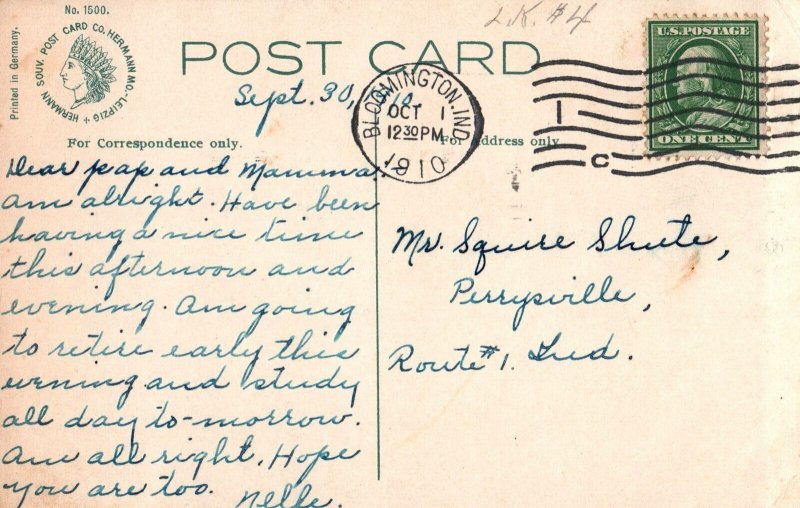 No. 1500.
Printed in Germany.
HERMANN SOUV. POST CARD CO. HERMANN MO.-LEIPZIG +
L.K. #4
U.S. POSTAGE
ONE CENT
POST CARD
Sept. 30, 10.
BLOOMINGTON, IND
OCT 1
12 30 PM
1910
1
C
For Correspondence only.
For Address only
Dear pap and Mamma.
am alright. Have been
having a nice time
this afternoon and
evening. Am going
to retire early this
evening and study
all day to-morrow.
Am all right. Hope
you are too. Nelle.
Mr. Squire Shute,
Perrysville,
Route #1. Ind.